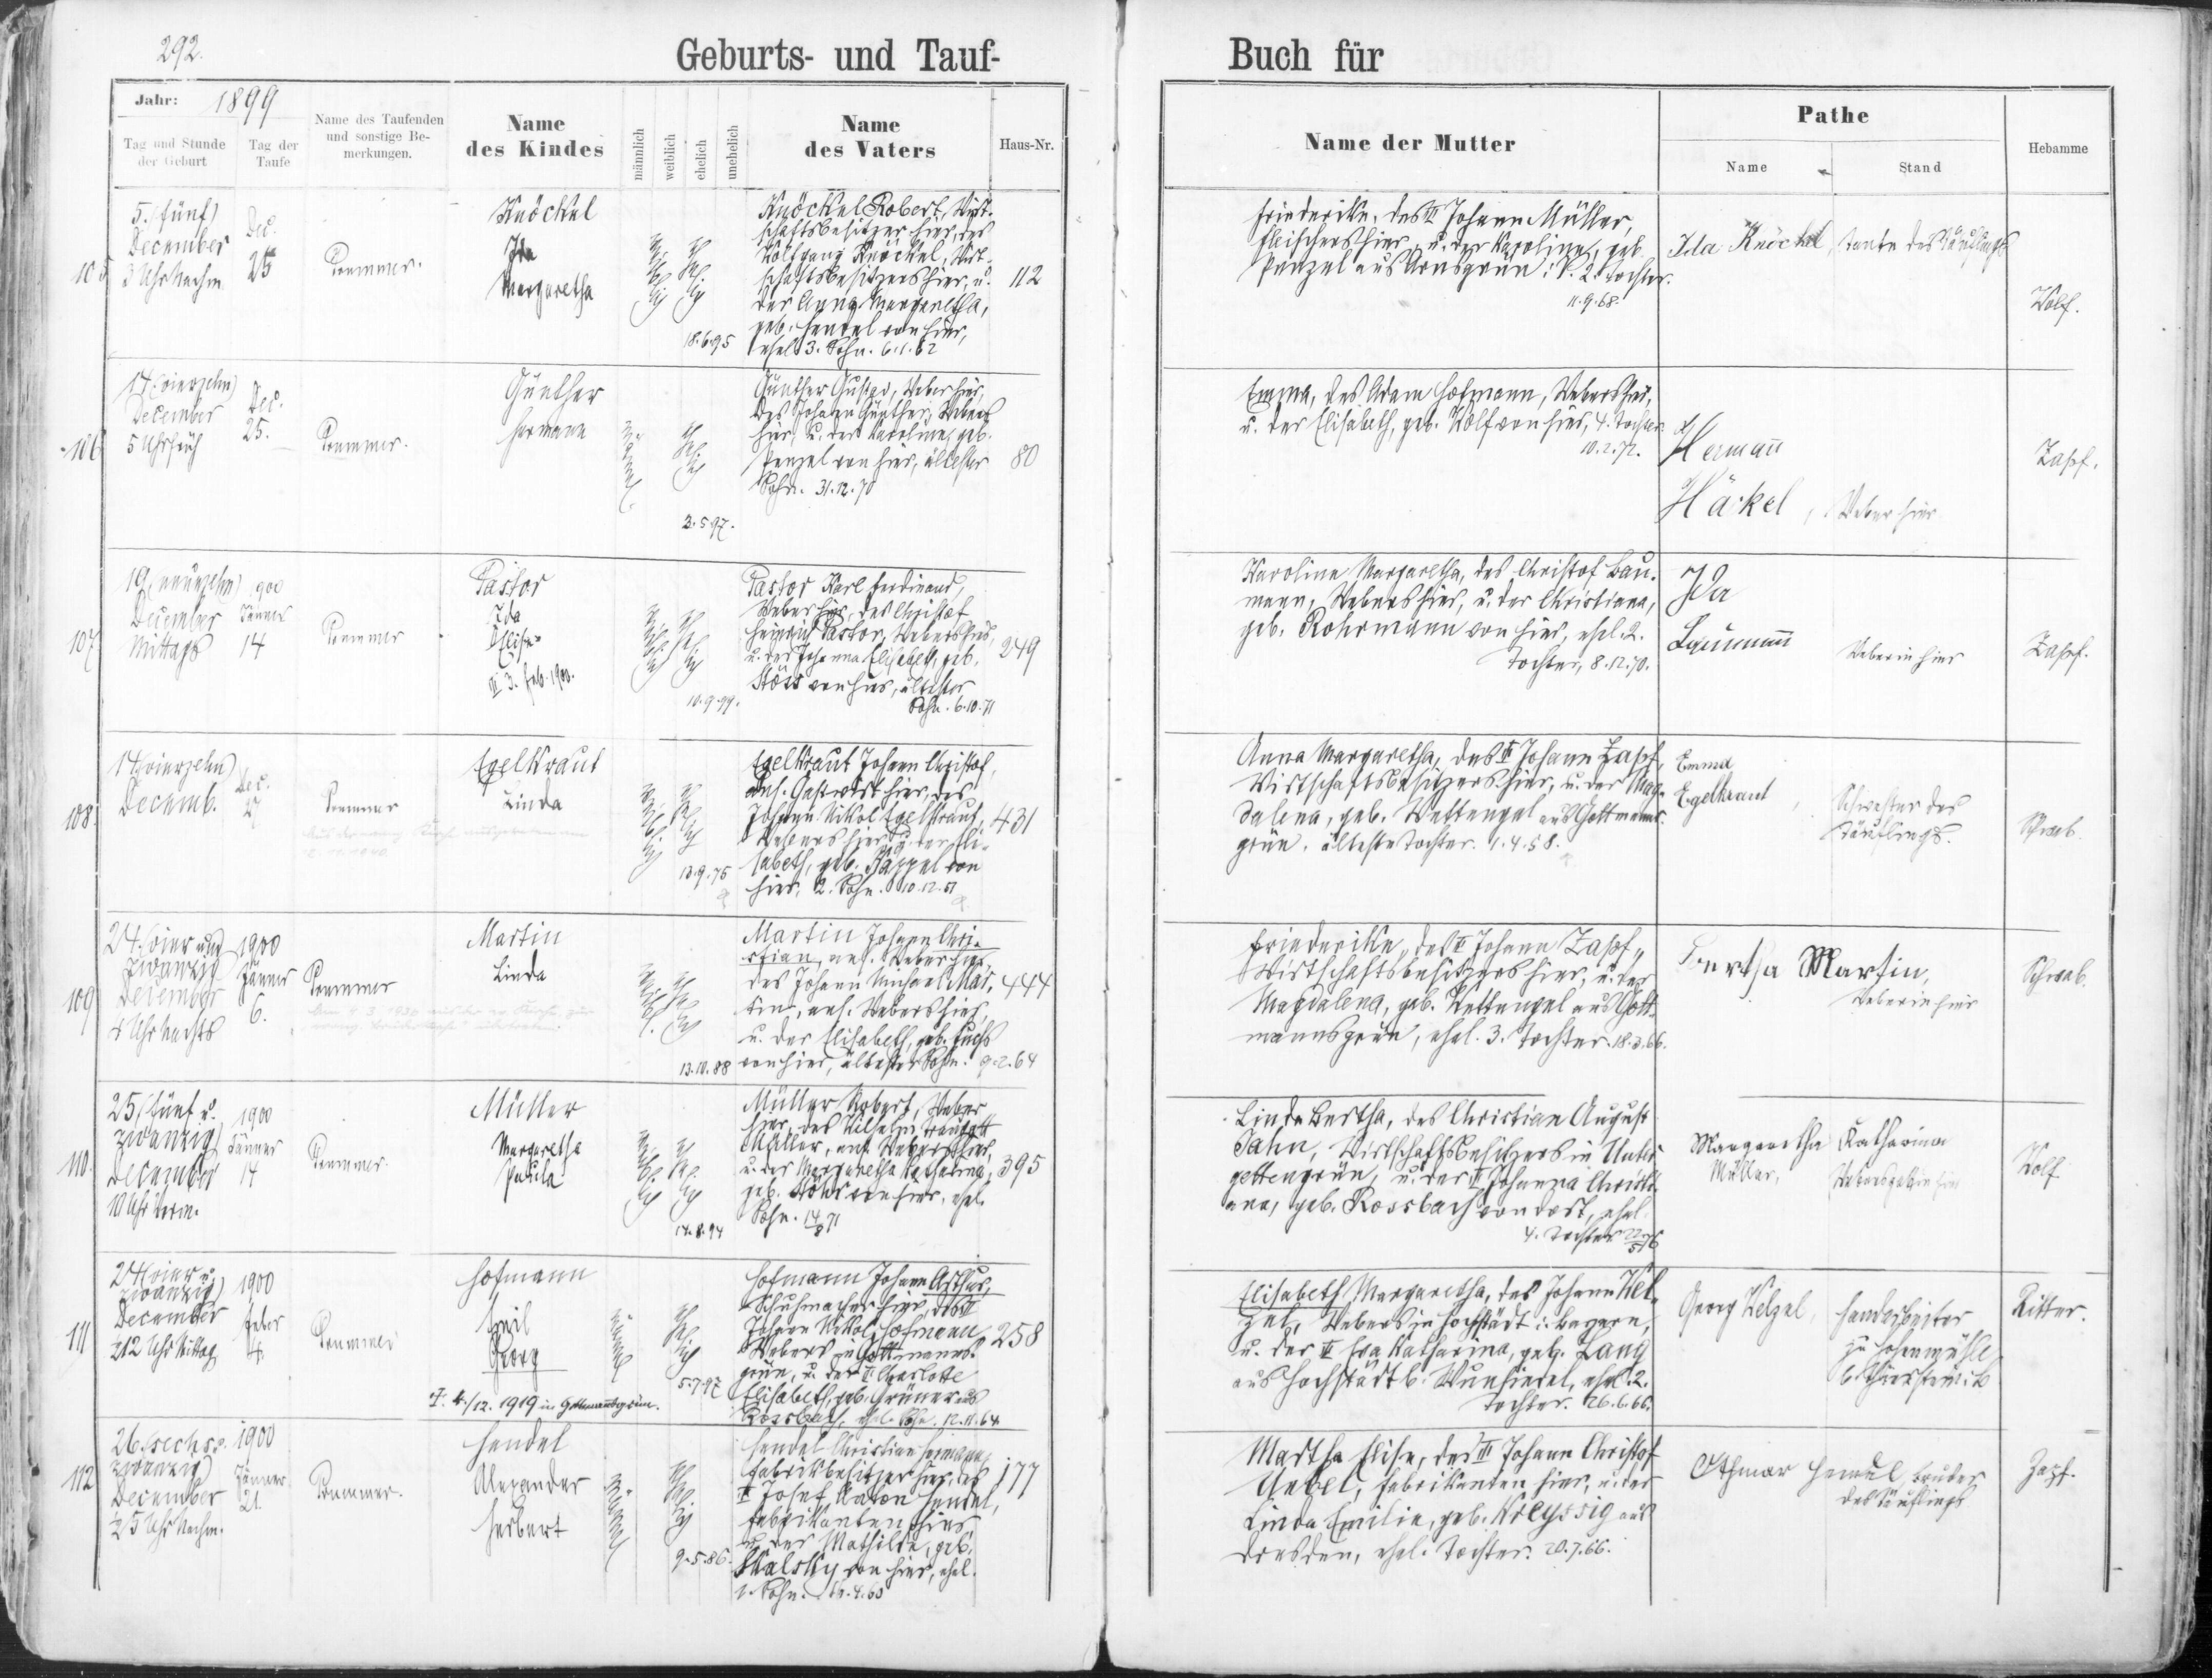 292.
Geburts- und Tauf-
Buch für
Jahr: 1899
Tag und Stunde
der Geburt
Tag der
Taufe
Name des Taufenden
und sonstige Be-
merkungen.
Name
des Kindes
männlich
weiblich
ehelich
unehelich
Name
des Vaters
Haus-Nr.
Name der Mutter
Pathe
Name
Stand
Hebamme
105
5. (fünf)
December
3 Uhr Nachm.
Dec.
25
Knöckel
Ida
Margaretha
weiblich
ehelich
18.6.95
Knöckel Robert, Wirt-
schaftsbesitzer hier, des
Wolfgang Knöckel, Wirt-
schaftsbesitzers hier, u.
der Anna Margaretha,
geb. Hendel von hier,
ehel. 3. Sohn. 6.11.62
112
Friederike, des II Johann Müller,
Fleischers hier, u. der Karoline, geb.
Penzel aus Arnsgrün i. V. 2. Tochter.
11.9.68.
Ida Knöckel, Tante des Täuflings
Wolf.
106
14 (vierzehn)
December
5 Uhr früh
Dec.
25.
Günther
Hermann
männl.
ehelich
3.5.97.
Günther Gustav, Weber hier,
des Johann Günther, Webers
hier, u. der Karoline, geb.
Penzel von hier, ältester
Sohn. 31.12.70
80
Emma, des Adam Hofmann, Webers hier,
u. der Elisabeth, geb. Wolf von hier, 4. Tochter.
10.2.72.
Hermann
Häckel, Weber hier
Zapf.
107
19 (neunzehn)
December
Mittags
900
Jänner
14
Pastor
Ida
Elise
3. Feb. 1900.
weiblich
ehelich
10.9.99.
Pastor Karl Ferdinand,
Weber hier, des Christof
Heinrich Pastor, Webers hier,
u. der Johanna Elisabeth, geb.
Stöss von hier, ältester
Sohn. 6.10.71
249
Karoline Margaretha, des Christof Bau-
mann, Webers hier, u. der Christiana,
geb. Rohrmann von hier, ehel. 2.
Tochter, 8.12.70.
Ida
Baumann
Weberin hier
Zapf.
108.
14 (vierzehn)
Decemb.
Dec.
27
Egelkraut
Linda
weiblich
ehelich
13.9.75
Egelkraut Johann Christof,
ans. Gastwirt hier, des
Johann Nikol Egelkraut,
Webers hier, u. der Eli-
sabeth, geb. Käppel von
hier, 2. Sohn. 10.12.51
431
Anna Margaretha, des II Johann Zapf,
Wirtschaftsbesitzers hier, u. der Mag-
dalena, geb. Wettengel aus Gottmanns-
grün. älteste Tochter. 1.4.58.
Emma
Egelkraut,
Schwester des
Täuflings.
Schwab.
109
24. (vier und
zwanzig)
December
4 Uhr Nachts
1900
Jänner
6.
Martin
Linda
weibl.
ehelich
13.10.88
Martin Johann Chri-
stian, ans. Weber hier,
des Johann Michael Mar-
tin, ans. Webers hier,
u. der Elisabeth, geb. Fuchs
von hier, ältester Sohn. 9.2.64
444
Friederike, des II Johann Zapf,
Wirtschaftsbesitzers hier, u. der
Magdalena, geb. Wettengel aus Gott-
mannsgrün, ehel. 3. Tochter. 18.3.66.
Bertha Martin,
Weberin hier
Schwab.
110.
25. (fünf u.
zwanzig)
December
10 Uhr Vorm.
1900
Jänner
14
Müller
Margaretha
Paula
weiblich
ehelich
14.8.94
Müller Robert, Weber
hier, des Wilhelm Traugott
Müller, ans. Webers hier,
u. der Margaretha Katharina,
geb. Stöss von hier, ehel.
Sohn. 14/8 71
395
Linda Bertha, des Christian August
Jahn, Wirtschaftsbesitzers in Unter-
gettengrün, u. der II Johanna Christi-
ana, geb. Rossbach von dort, ehel.
4. Tochter
Margaretha Katharina
Müller, Webersgattin hier
Wolf
111
24 (vier u.
zwanzig)
December
½12 Uhr Mittag
1900
Feber
4.
Hofmann
Emil
Georg
4./12. 1919 in Gottmannsgrün.
männl.
ehelich
5.7.97
Hofmann Johann Arthur,
Schuhmacher hier, des II
Johann Nikol Hofmann,
Webers in Gottmanns-
grün, u. der II Charlotte
Elisabeth, geb. Grüner aus
Rossbach, ehel. Sohn. 12.11.64
258
Elisabeth Margaretha, des Johann Wel-
zel, Webers in Hochstädt i. Bayern,
u. der II Eva Katharina, geb. Lang
aus Hochstädt b. Wunsiedel, ehel. 2.
Tochter. 26.6.66.
Georg Welzel, Handarbeiter
Ritter.
112
26. (sechs u.
zwanzig)
December
½5 Uhr Nachm.
1900
Jänner
21.
Hendel
Alexander
Herbert
männl.
ehelich
9.5.86.
Hendel Christian Hermann,
Fabrikbesitzer hier, des
II Josef Anton Hendel,
Fabrikanten hier
u. der Mathilde, geb.
Skalsky von hier, ehel.
1. Sohn.
177
Martha Elise, des III Johann Christof
Uebel, Fabrikanten hier, u. der
Linda Emilie, geb. Kreyssig aus
Dresden, ehel. Tochter. 20.7.66.
Othmar Hendel, Bruder
des Täuflings
Zapf.